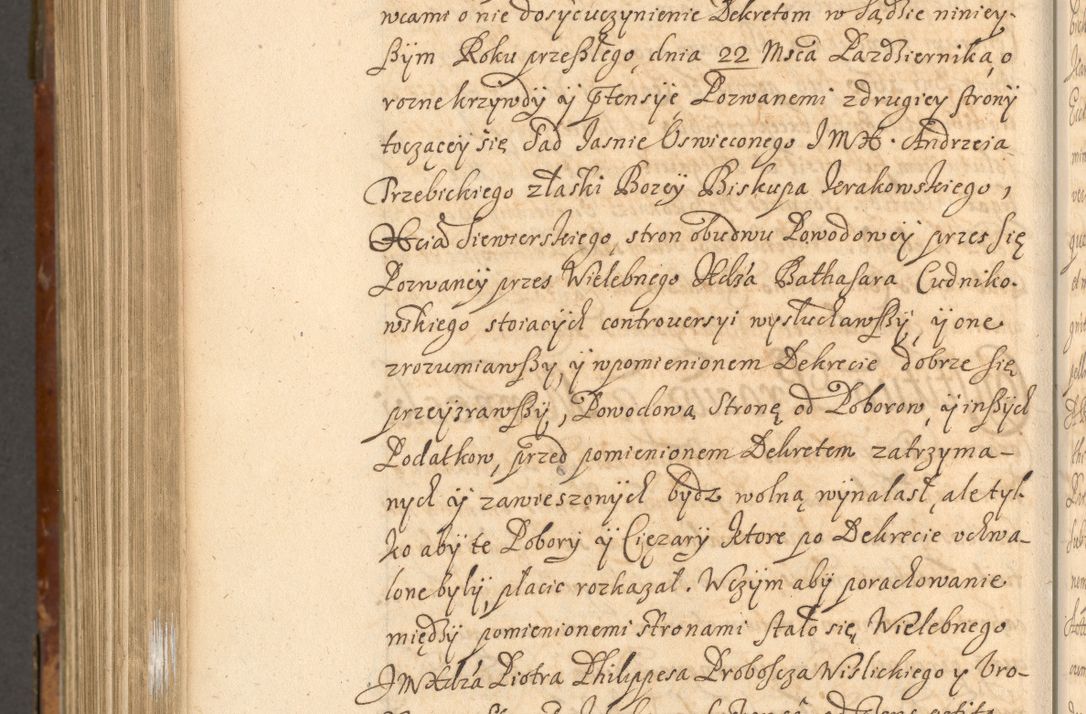 wcami o nie dosyc uczynienie Dekretom w Sądzie niniey-
szym Roku przeszłego, dnia 22 Msca Pazdziernika, o
rozne krzywdy y ptensye Pozwanemi z drugiey strony
toczącey się Sąd Jasnie Oswieconego JMX. Andrzeia
Trzebickiego z łaski Bozey Biskupa krakowskiego,
Xcia Siewierskiego, stron obudwu Powodowey przes się
Pozwaney przes Wielebnego Xdza Balthasara Cudniko-
wskiego stoiacych controversyi wysłuchawszy, y one
zrozumiawszy, y wpomienionem Dekrecie dobrze się
przeyzrawszy, Powodową Stronę od Poborow, y inszych
Podatkow, przed pomienionem Dekretem zatrzyma-
nych y zawieszonych bydz wolną wynalasł, ale tyl-
ko aby te Pobory y Ciężary ktore po Dekrecie uchwa-
lone były, płacic rozkazał. Wczym aby porachowanie
między pomienionemi stronami stało się, Wielebnego
JMXdza Piotra Philippesa Proboscza Wislickiego y Uro-